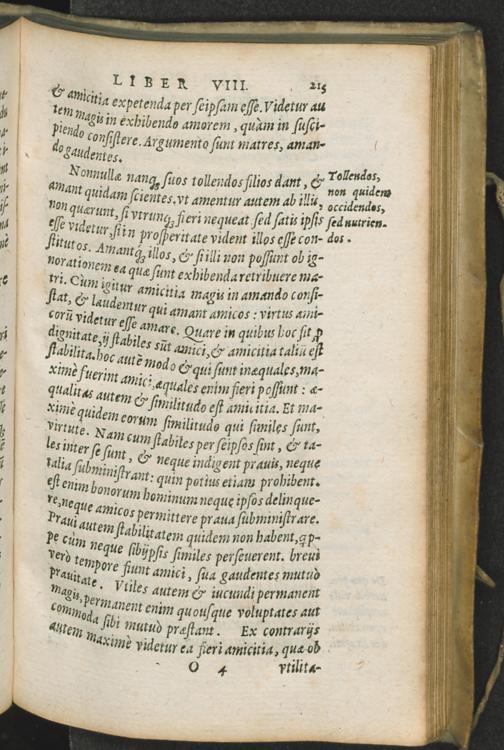 LIBER VIII. 215
& amicitia expetenda per seipsam esse. Videtur au
tem magis in exhibendo amorem, quàm in susci-
piendo consistere. Argumento sunt matres, aman-
do gaudentes.
Nonnullæ nanq; suos tollendos filios dant, &
amant quidam scientes. vt amentur autem ab illis,
non quærunt, si vtrunq; fieri nequeat sed satis ipsis
esse videtur, si in prosperitate vident illos esse con-
stitutos. Amantq; illos, & si illi non possunt ob ig-
norationem ea quæ sunt exhibenda retribuere ma-
tri. Cùm igitur amicitia magis in amando consi-
stat, & laudentur qui amant amicos: virtus ami-
corū videtur esse amare. Quare in quibus hoc sit ꝓ
dignitate, ij stabiles sūt amici, & amicitia taliū est
stabilita. hoc autē modo & qui sunt inæquales, ma-
ximè fuerint amici. æquales enim fieri possunt: æ-
qualitas autem & similitudo est amicitia. Et ma-
ximè quidem eorum similitudo qui similes sunt,
virtute. Nam cum stabiles per seipsos sint, & ta-
les inter se sunt, & neque indigent prauis, neque
talia subministrant: quin potius etiam prohibent.
est enim bonorum hominum neque ipsos delinque-
re, neque amicos permittere praua subministrare.
Praui autem stabilitatem quidem non habent, qp-
pe cùm neque sibijpsis similes perseuerent. breui
verò tempore fiunt amici, sua gaudentes mutuò
prauitate. Vtiles autem & iucundi permanent
magis, permanent enim quousque voluptates aut
commoda sibi mutuò præstant. Ex contrarijs
autem maximè videtur ea fieri amicitia, quæ ob
O 4 vtilita-
Tollendos,
non quidem
occidendos,
sed nutrien-
dos.